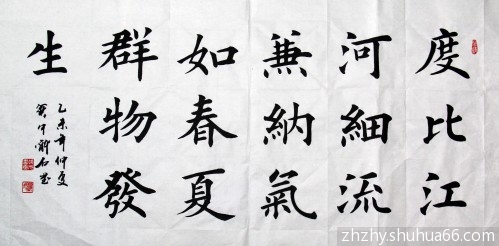 度比江
河細流
兼納氣
如春夏
群物發
生
乙未年仲夏
zhzhy.shuhua66.com